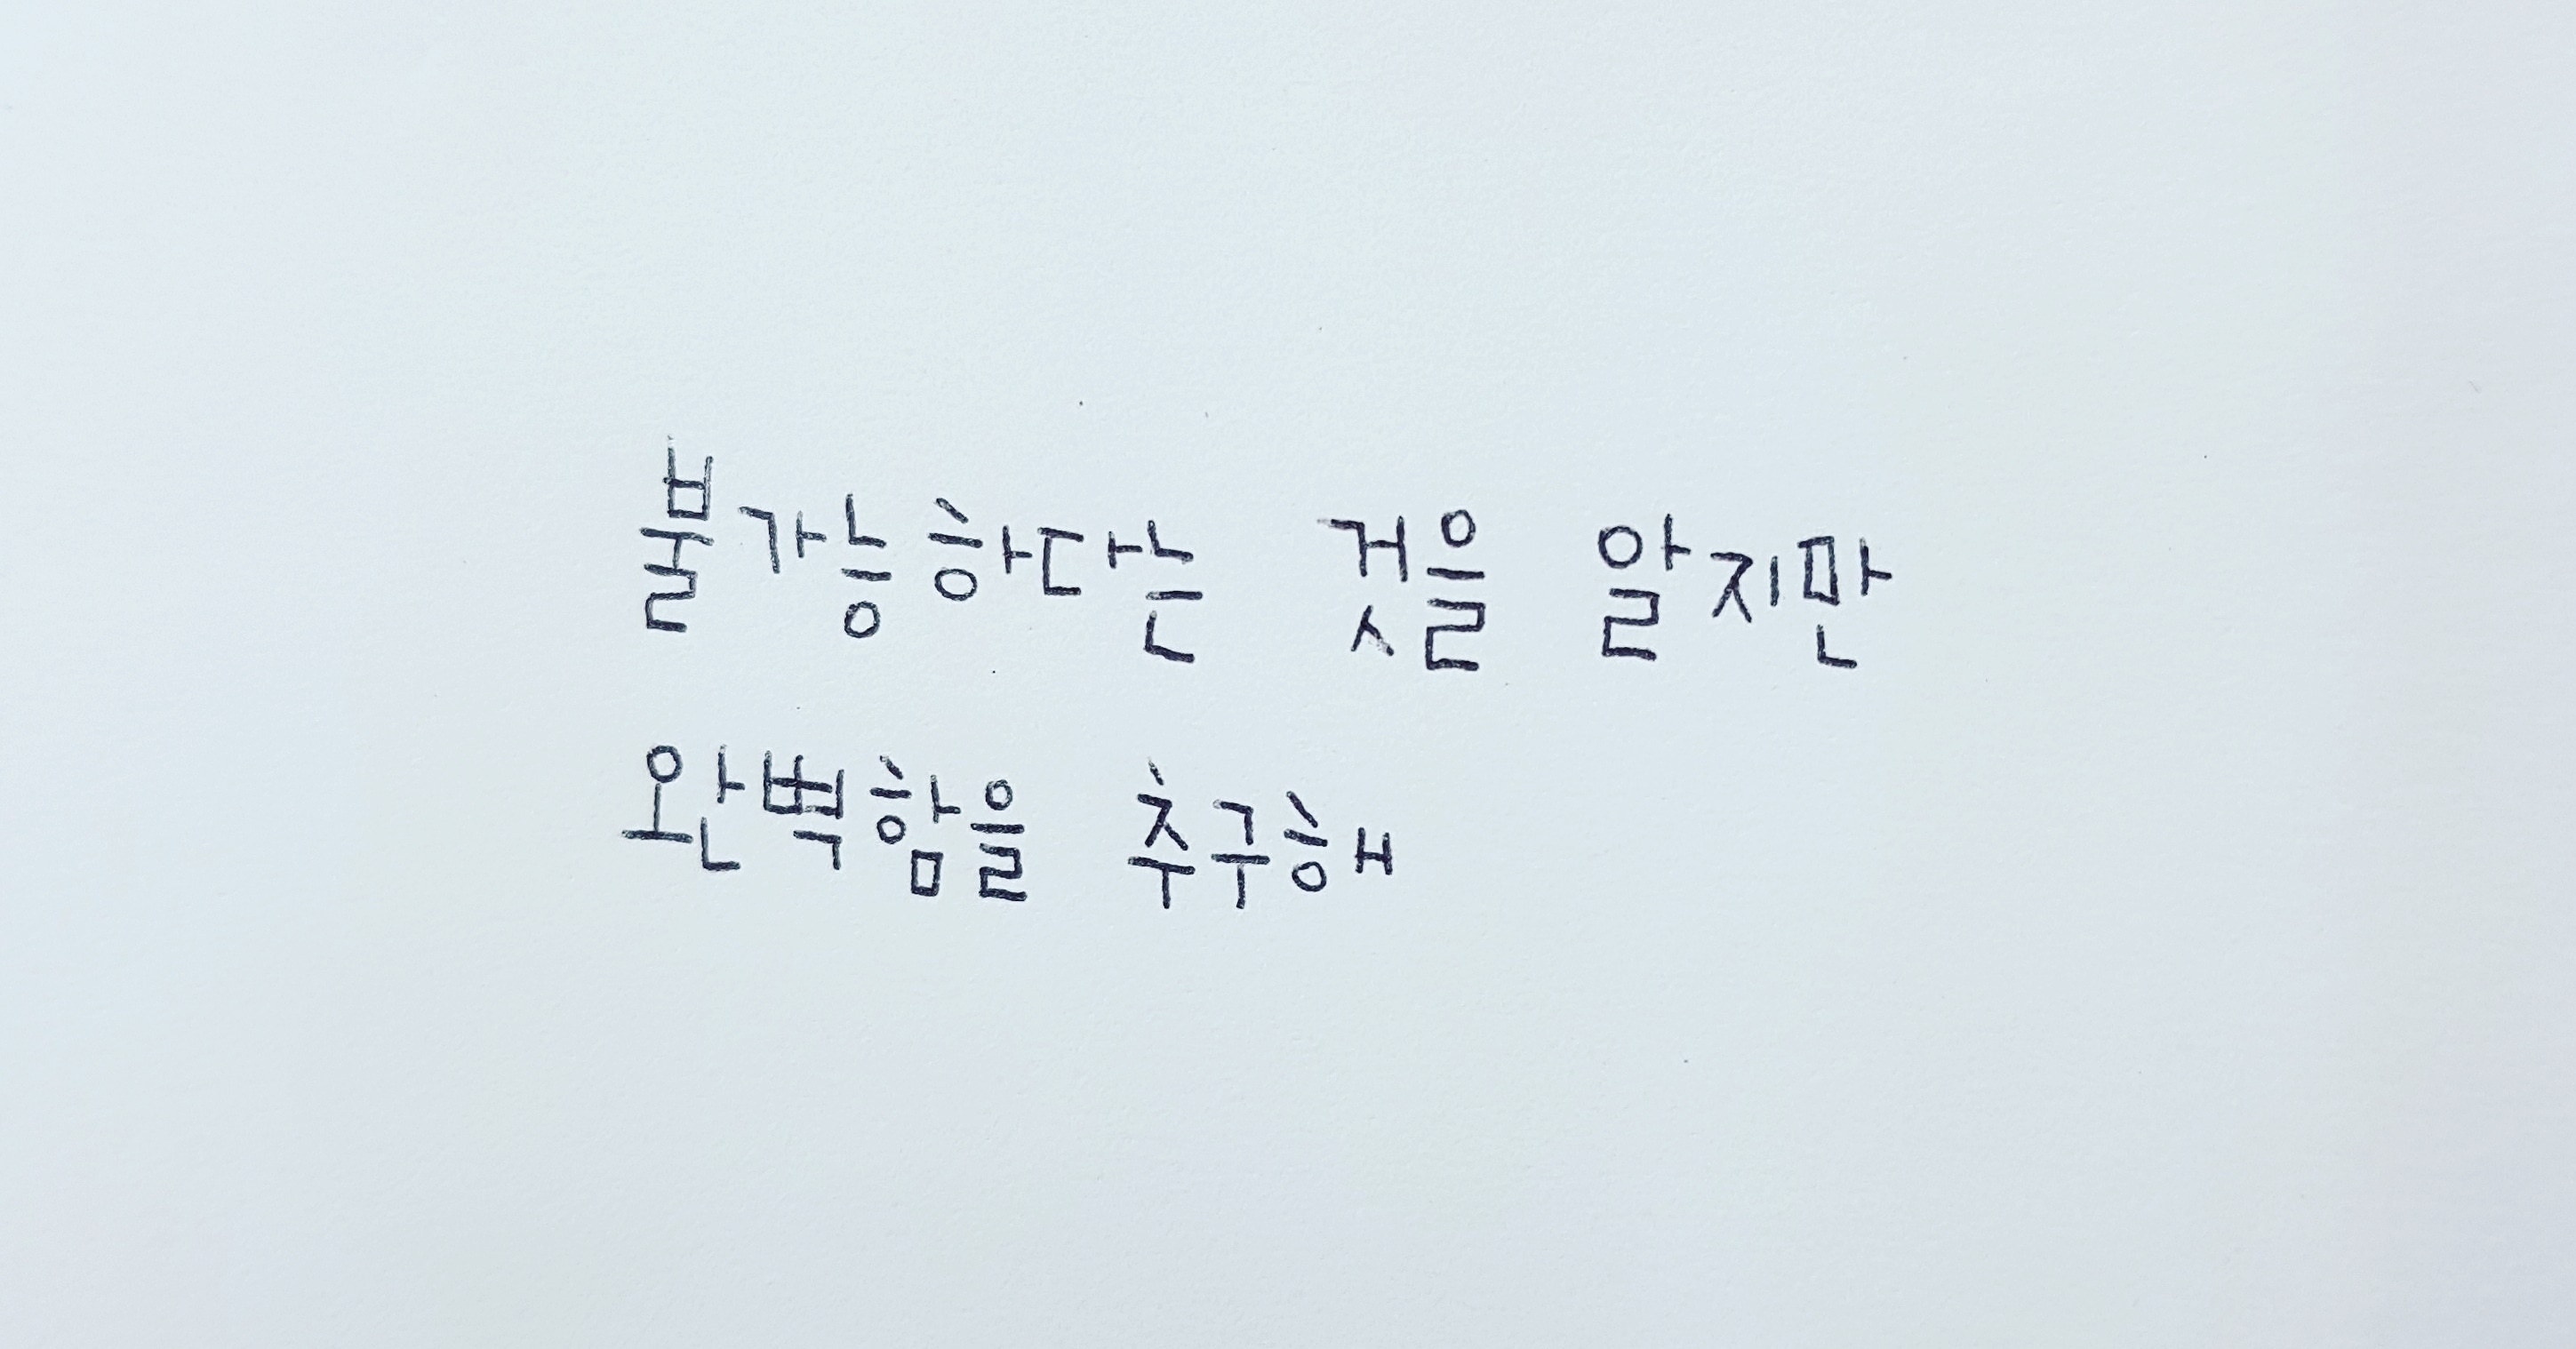 불가능하다는 것을 알지만
완벽함을 추구해